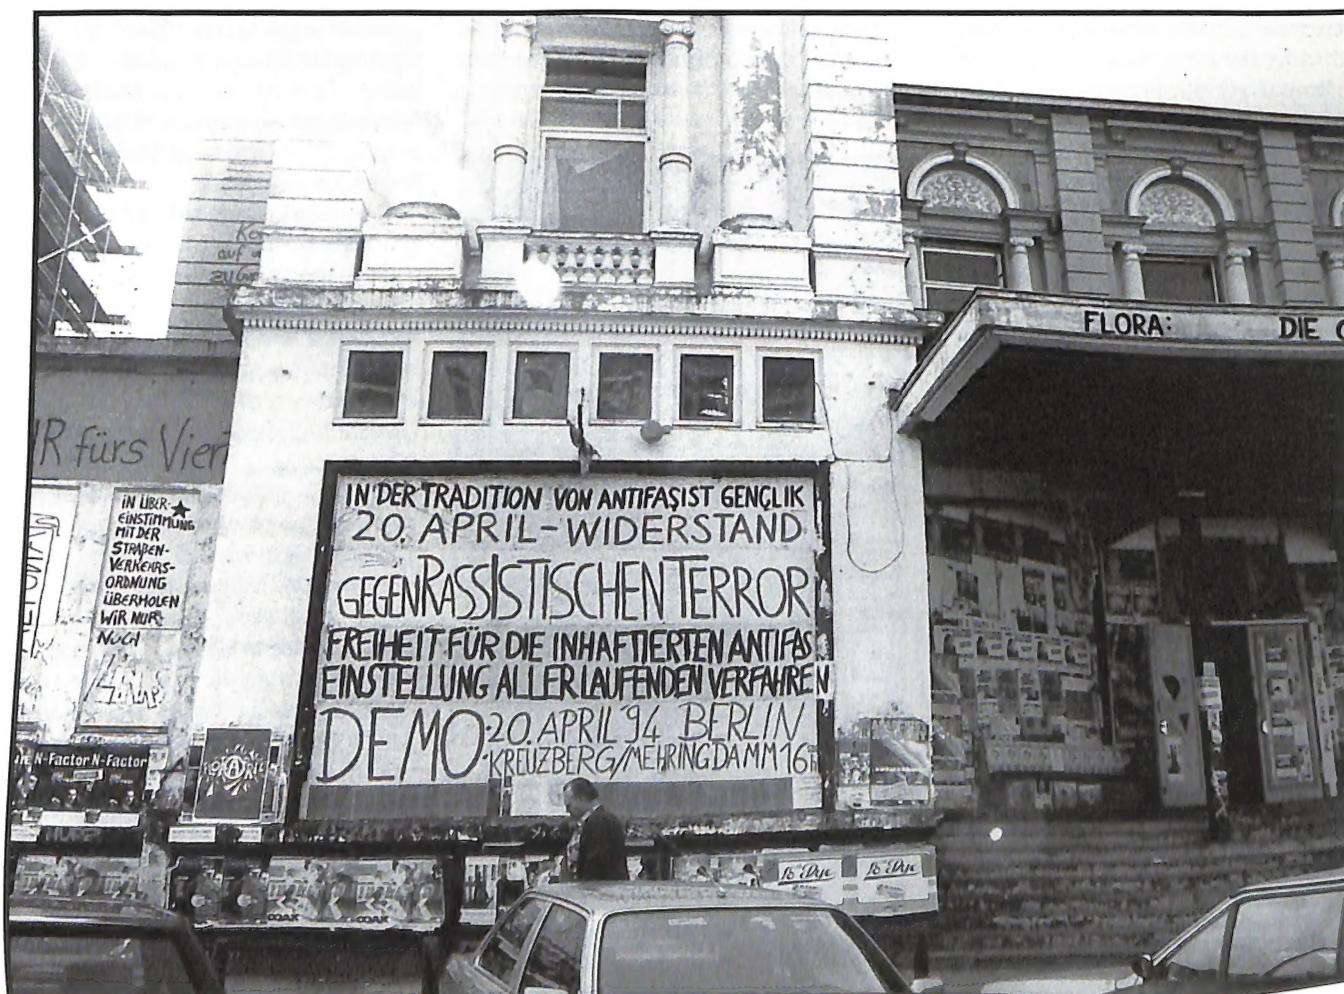 FLORA: DIE
auf
fürs
IN ÜBER-
EINSTIMMUNG
MIT DER
STRAßEN-
VERKEHRS-
ORDNUNG
ÜBERHOLEN
WIR NUR
NOCH
IN DER TRADITION VON ANTIFAŞIST GENÇLIK
20. APRIL – WIDERSTAND
GEGEN RASSISTISCHEN TERROR
FREIHEIT FÜR DIE INHAFTIERTEN ANTIFAS
EINSTELLUNG ALLER LAUFENDEN VERFAHREN
DEMO: 20. APRIL '94 BERLIN
KREUZBERG/MEHRINGDAMM 16
N-Factor N-Factor